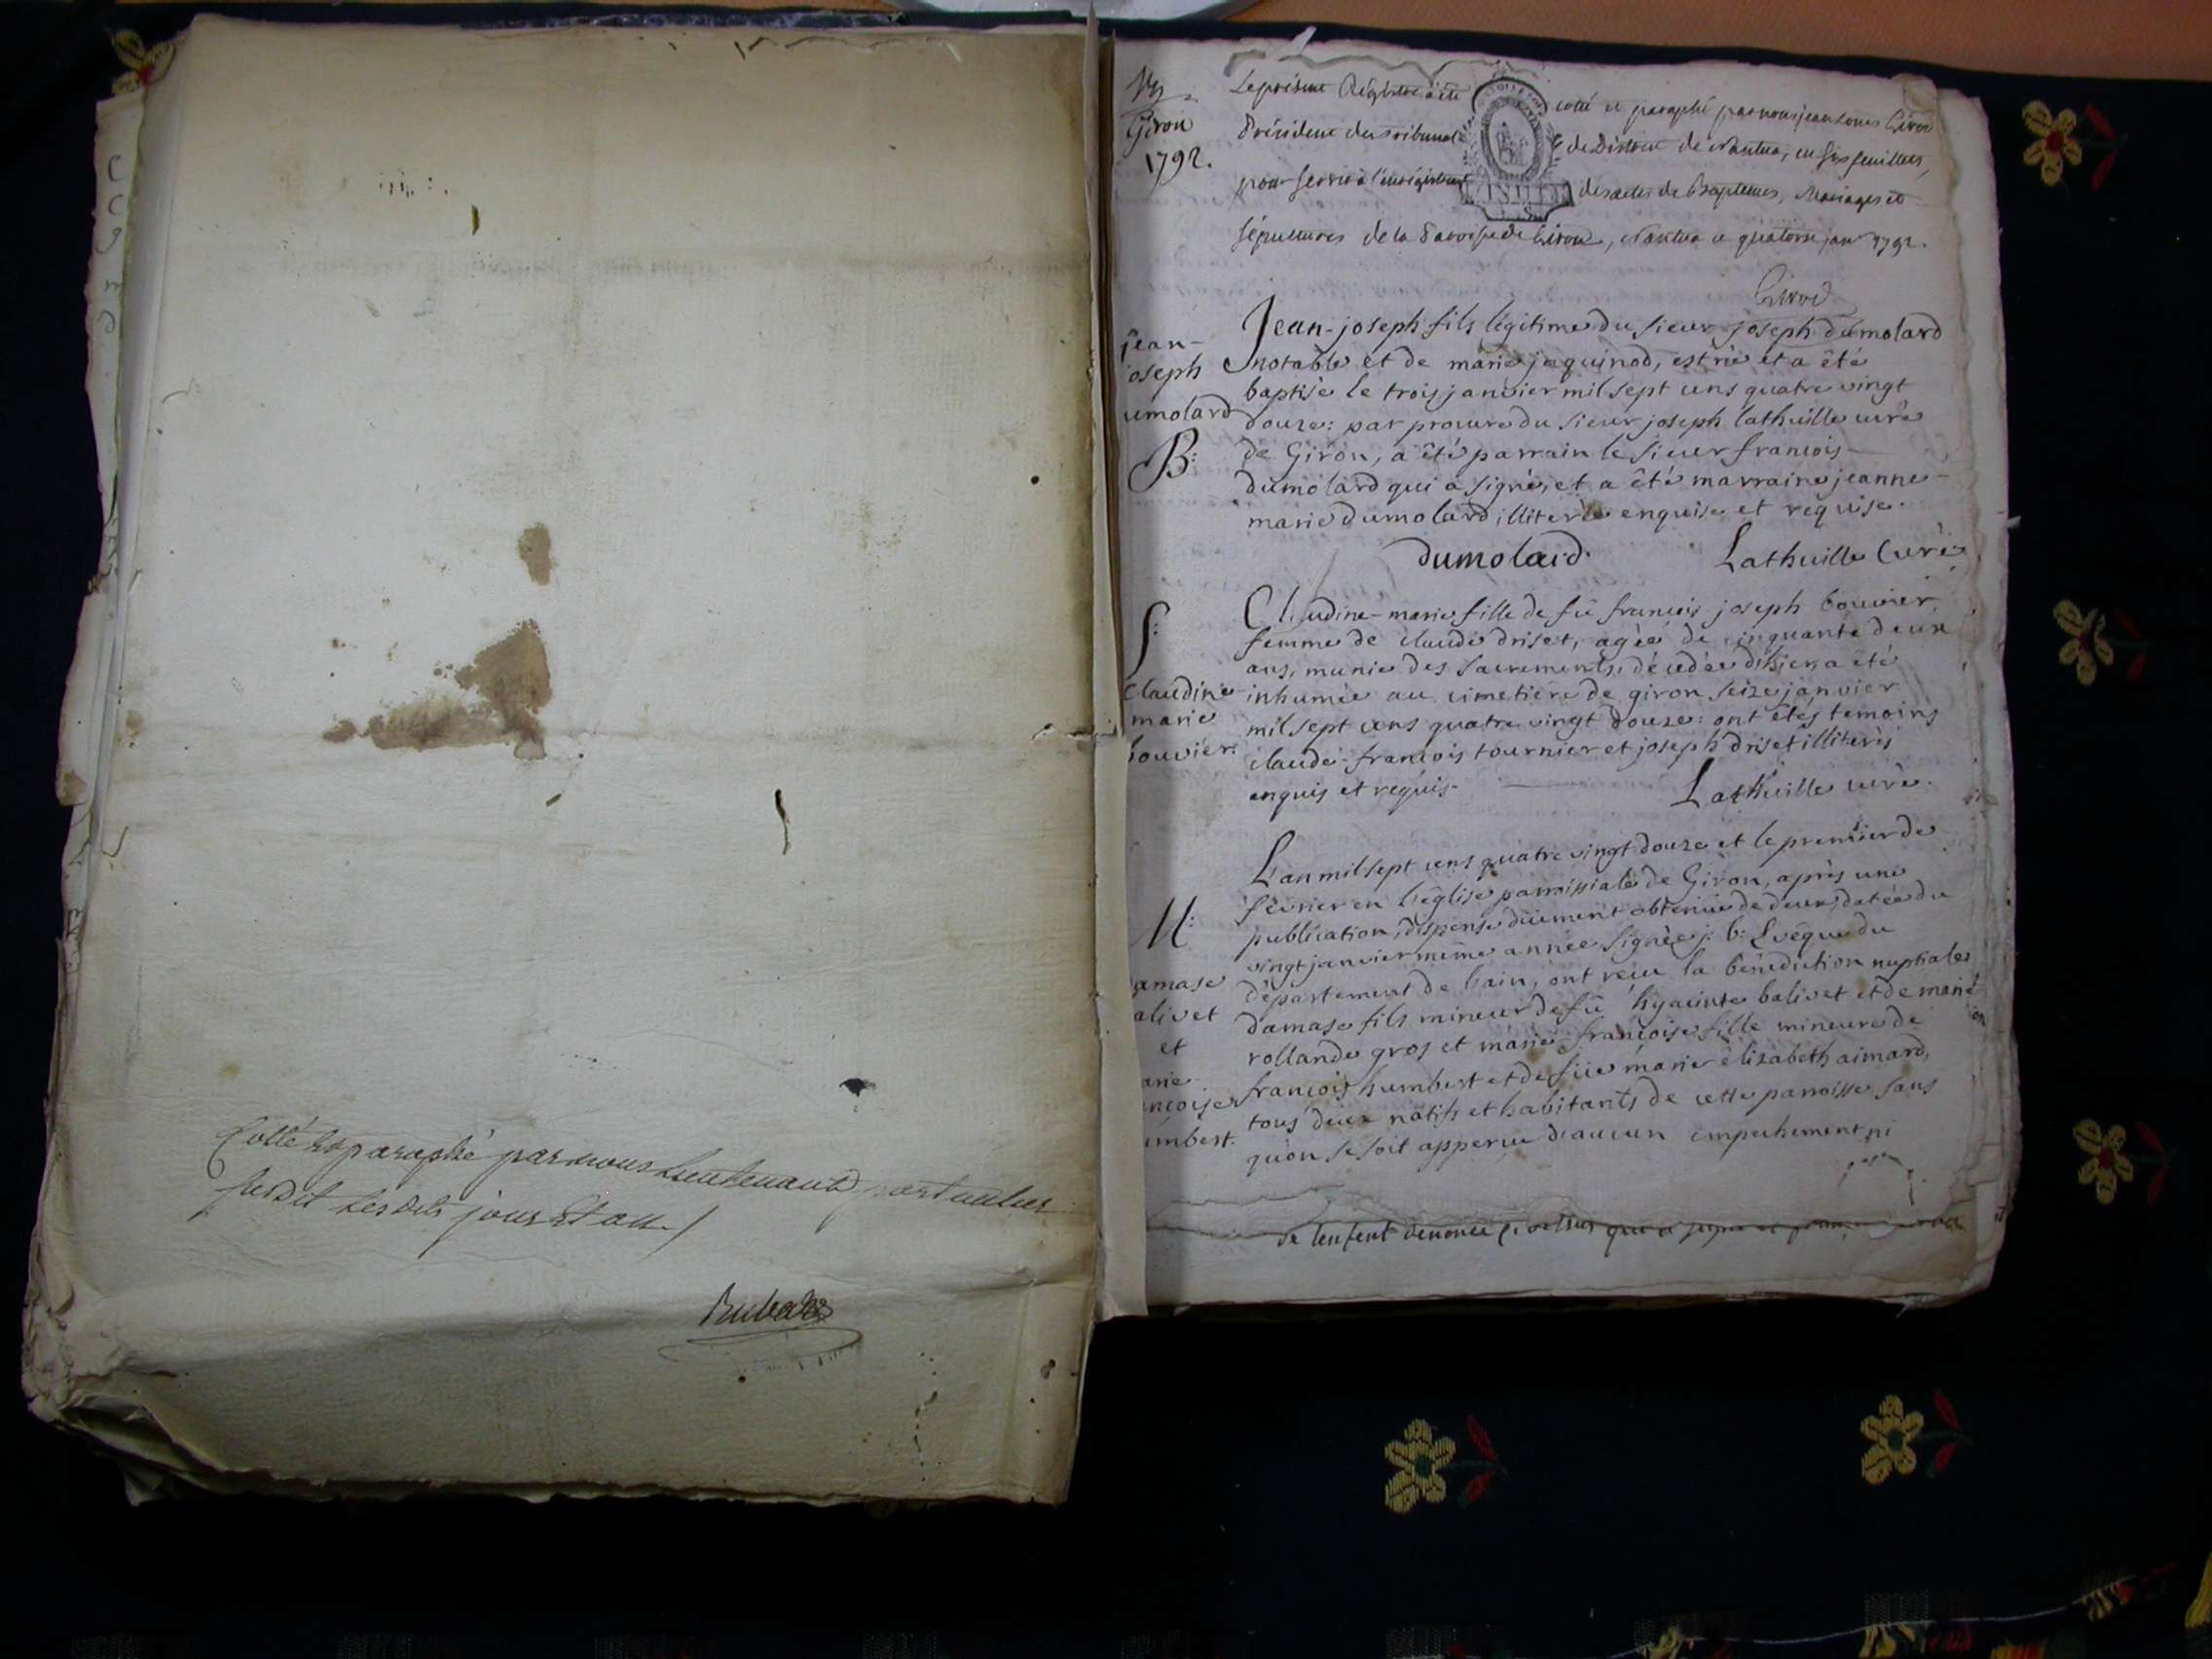 Cotté et paraphé par nous Lieutenant particulier
susdit les dits jour et an /
Giron
1792.
Le présent Régistre a été cotté et paraphé par nous jean Louis Girod
Président du Tribunal de District de Nantua, en six feuillets,
pour servir à l'enrégistrement des actes de Baptemes, Mariages et
sépultures de la Paroisse de Giron, Nantua ce quatorze janr 1792.
Girod
jean-
oseph
umolard
B:
Jean-joseph fils légitime du sieur joseph dumolard
notable et de marie jaquinod, est né et a êté
baptisé le trois janvier mil sept cens quatre vingt
douze: par procure du sieur joseph lathuille curé
de Giron, a êté parrain le sieur françois-
dumolard qui a signé, et a êté marraine jeanne-
marie dumolard, illiterée enquise et requise.
dumolard. Lathuille Curé
S:
Claudine
marie
bouvier.
Claudine-marie fille de fû françois-joseph bouvier,
femme de claude driset, agée de cinquante deux
ans, munie des sacrements, décédée d'hier, a êté
inhumée au cimetière de giron seize janvier
mil sept cens quatre vingt douze: ont êtés temoins
claude-françois tournier et joseph driset illiterés
enquis et requis. Lathuille curé.
M:
amase
alivet
et
arie
ncoise
umbert.
L'an mil sept cens quatre vingt douze et le premier de
février en l'église parroissiale de Giron, après une
publication, dispense duement obtenue de deux, datée du
vingt janvier même année signée j: b: Evêque du
département de l'ain, ont reçu la bénédiction nuptiale
damase fils mineur de fû hyacinte balivet et de marie
rollande gros et marie françoise fille mineure de
françois humbert et de fûe marie èlizabeth aimard,
tous deux natifs et habitants de cette parroisse sans
qu'on se soit apperçu d'aucun empechement ni
de lenfent denomée ci dessus qui a signé et